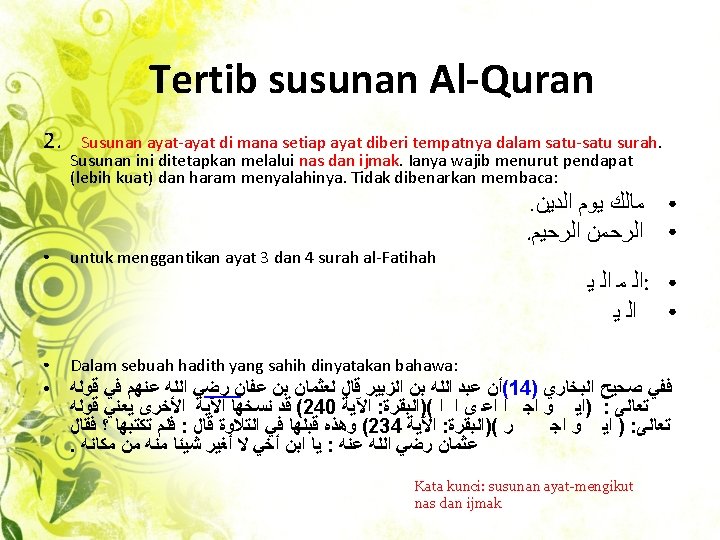 Tertib susunan Al-Quran
2. Susunan ayat-ayat di mana setiap ayat diberi tempatnya dalam satu-satu surah.
Susunan ini ditetapkan melalui nas dan ijmak. Ianya wajib menurut pendapat
(lebih kuat) dan haram menyalahinya. Tidak dibenarkan membaca:
• مالك يوم الدين.
• الرحمن الرحيم.
• untuk menggantikan ayat 3 dan 4 surah al-Fatihah
• :ال م ال ي
• ال ي
• Dalam sebuah hadith yang sahih dinyatakan bahawa:
• ففي صحيح البخاري (14)أن عبد الله بن الزبير قال لعثمان بن عفان رضي الله عنهم في قوله
تعالى : (اي و اج ا اع ى ا ا )(البقرة: الآية 240) قد نسخها الآية الأخرى يعني قوله
تعالى: ( اي و اج ر )(البقرة: الآية 234) وهذه قبلها في التلاوة قال : فلم تكتبها ؟ فقال
عثمان رضي الله عنه : يا ابن أخي لا أغير شيئا منه من مكانه .
Kata kunci: susunan ayat-mengikut
nas dan ijmak